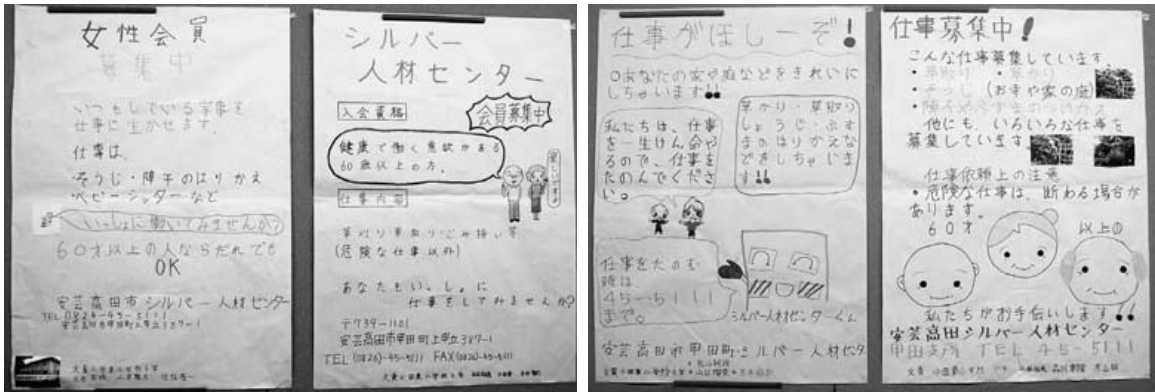 女性会員
募集中
いつもしている家事を
仕事に生かせます。
仕事は、
・そうじ・障子のはりかえ
・ベビーシッターなど
いっしょに働いてみませんか?
60才以上の人ならだれでも
OK
安芸高田市シルバー人材センター
TEL 0826-45-5111
シルバー
人材センター
入会資格
会員募集中
健康で働く意欲がある
60歳以上の方。
楽しいですよ
仕事内容
草刈り・草取り・ごみ拾い等
(危険な仕事以外)
あなたもいっしょに
仕事をしてみませんか?
〒739-1101
安芸高田市甲田町上甲立387-1
TEL (0826)-45-5111 FAX(0826)-45-5111
仕事がほしーぞ!
○あなたの家や庭などをきれいに
しちゃいます!!
私たちは、仕事
を一生けん命や
るので、仕事を
たのんでくださ
い。
草かり・草取り
しょうじ・ふす
まのはりかえな
どをしちゃいま
す!!
仕事をたのむ
時は、
45-5111
まで。
シルバー人材センターくん
安芸高田市甲田町・シルバー人材センタ
仕事募集中!
こんな仕事募集しています。
・草取り ・草かり
・そうじ (お寺や家の庭)
・障子やふすまのはりかえ
他にも、いろいろな仕事を
募集しています。
仕事依頼上の注意
・危険な仕事は、断わる場合が
あります。
60才 以上
私たちがお手伝いします!!
安芸高田シルバー人材センター
甲田支所 TEL 45-5111